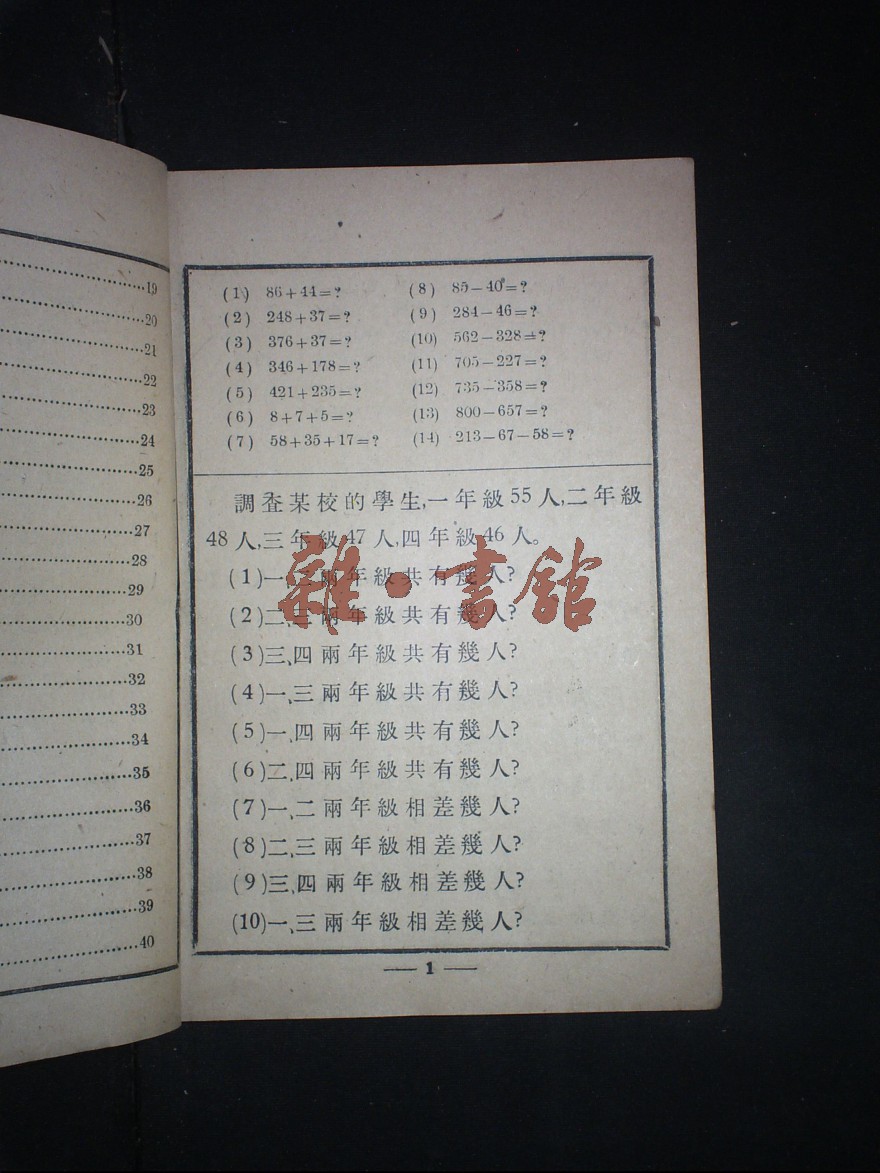 19
20
21
22
23
24
25
26
27
28
29
30
31
32
33
34
35
36
37
38
39
40
(1) 86+44=?
(2) 248+37=?
(3) 376+37=?
(4) 346+178=?
(5) 421+235=?
(6) 8+7+5=?
(7) 58+35+17=?
(8) 85-40=?
(9) 284-46=?
(10) 562-328=?
(11) 705-227=?
(12) 735-358=?
(13) 800-657=?
(14) 213-67-58=?
調查某校的學生,一年級55人,二年級
48人,三年級47人,四年級46人。
(1)一、二兩年級共有幾人?
(2)二、三兩年級共有幾人?
(3)三、四兩年級共有幾人?
(4)一、三兩年級共有幾人?
(5)一、四兩年級共有幾人?
(6)二、四兩年級共有幾人?
(7)一、二兩年級相差幾人?
(8)二、三兩年級相差幾人?
(9)三、四兩年級相差幾人?
(10)一、三兩年級相差幾人?
雜·書館
— 1 —